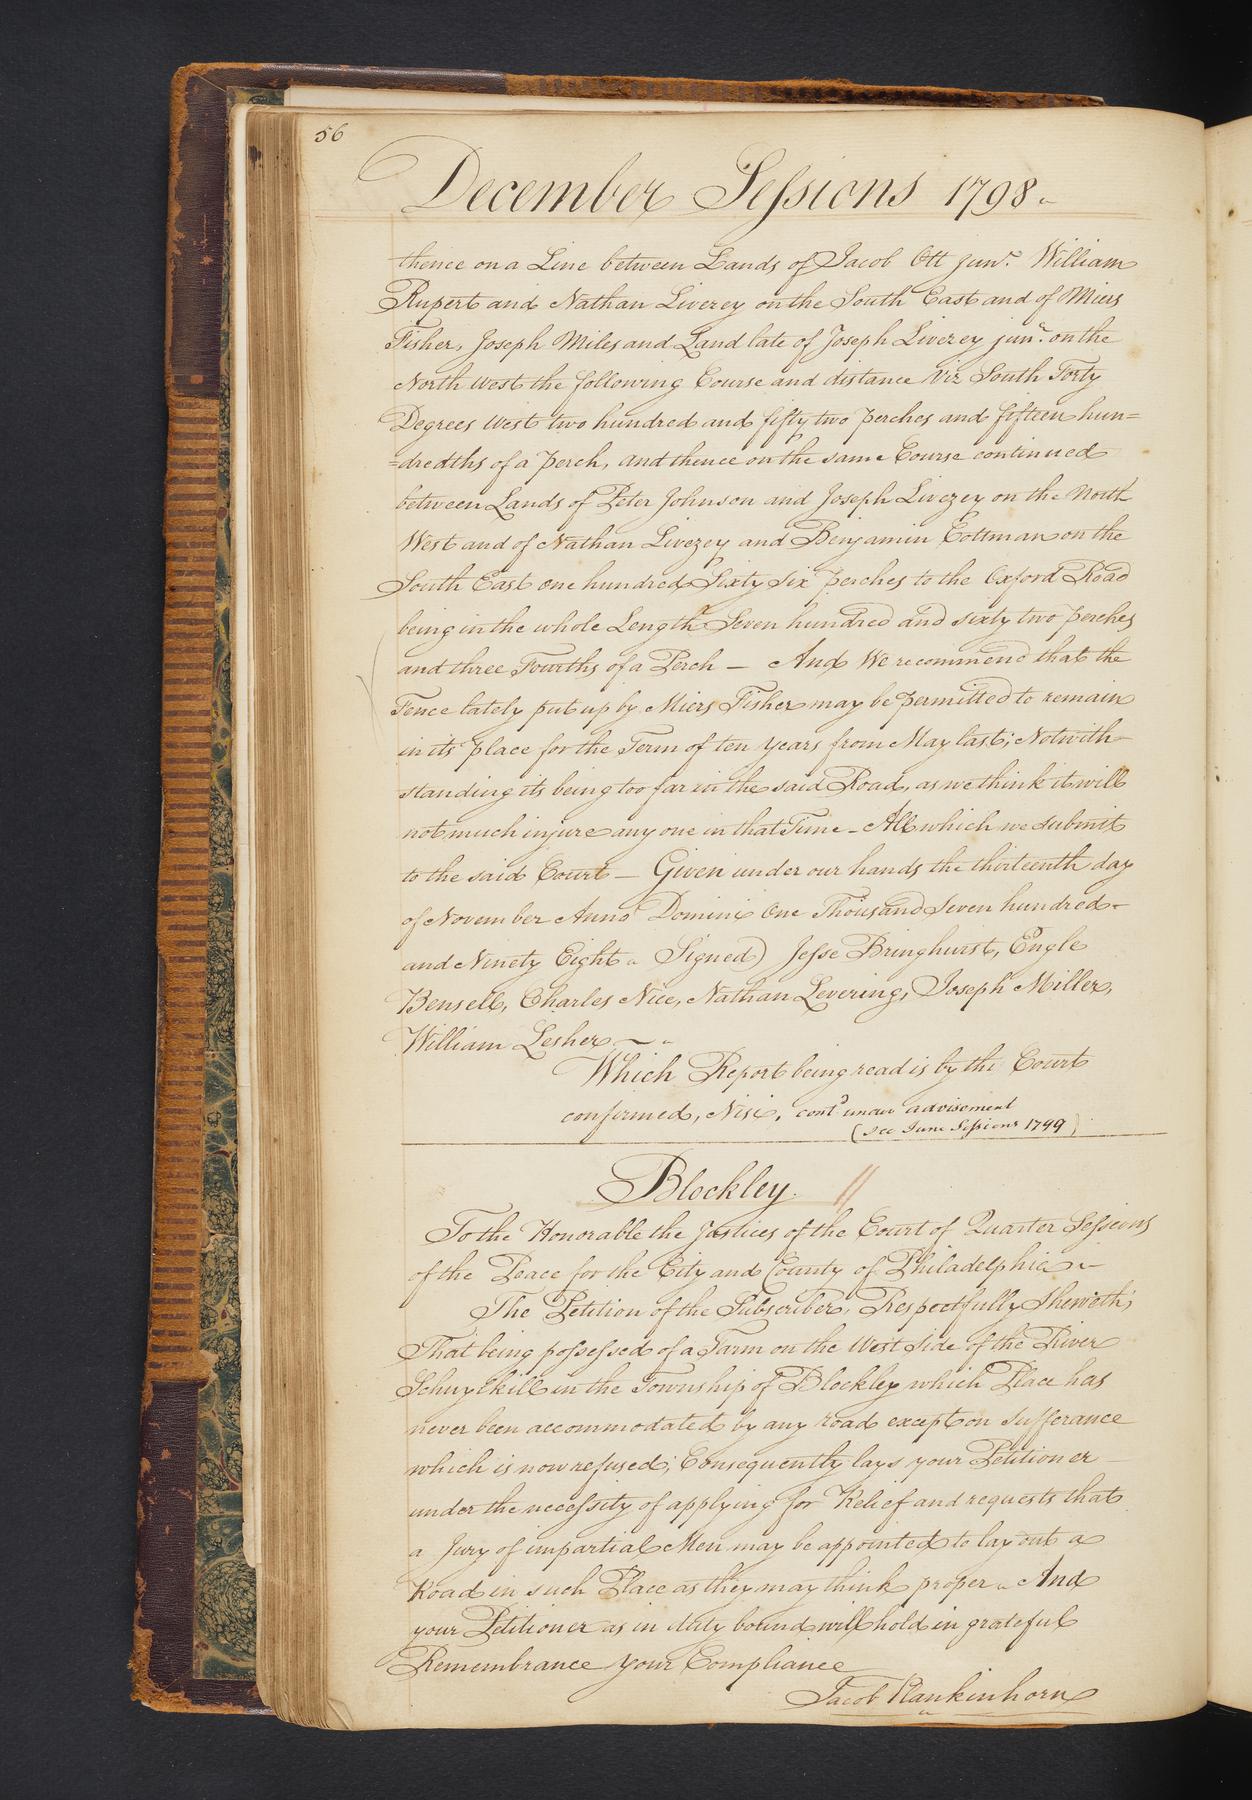 56
December Sessions 1798
thence on a Line between Lands of Jacob Ott junr. William
Rupert and Nathan Livezey on the South East and of Miers
Fisher, Joseph Miles and Land late of Joseph Livezey junr. on the
North West the following Course and distance Viz South Forty
Degrees West two hundred and fifty two perches and fifteen hun=
=dredths of a perch, and thence on the same Course continued
between Lands of Peter Johnson and Joseph Livezey on the North
West and of Nathan Livezey and Benjamin Cottman on the
South East one hundred Sixty six perches to the Oxford Road
being in the whole Length Seven hundred and sixty two perches
and three Fourths of a Perch — And We recommend that the
Fence lately put up by Miers Fisher may be permitted to remain
in its place for the Term of ten years from May last; Notwith-
standing its being too far in the said Road, as we think it will
not much injure any one in that Time - All which we submit
to the said Court — Given under our hands the thirteenth day
of November Anno Domini One Thousand Seven hundred
and Ninety Eight Signed) Jesse Bringhurst, Engle
Bensell, Charles Nice, Nathan Levering, Joseph Miller,
William Lesher —
Which Report being read is by the Court
confirmed, Nisi, contd under advisement
(see June Sessions 1799)
Blockley. //
To the Honorable the Justices of the Court of Quarter Sessions
of the Peace for the City and County of Philadelphia
The Petition of the Subscriber, Respectfully Sheweth,
That being possessed of a Farm on the West Side of the River
Schuylkill in the Township of Blockley which Place has
never been accommodated by any road except on sufferance
which is now refused; Consequently lays your Petitioner
under the necessity of applying for Relief and requests that
a Jury of impartial Men may be appointed to lay out a
Road in such Place as they may think proper And
your Petitioner as in duty bound will hold in grateful
Remembrance your Compliance
Jacob Plankinhorn